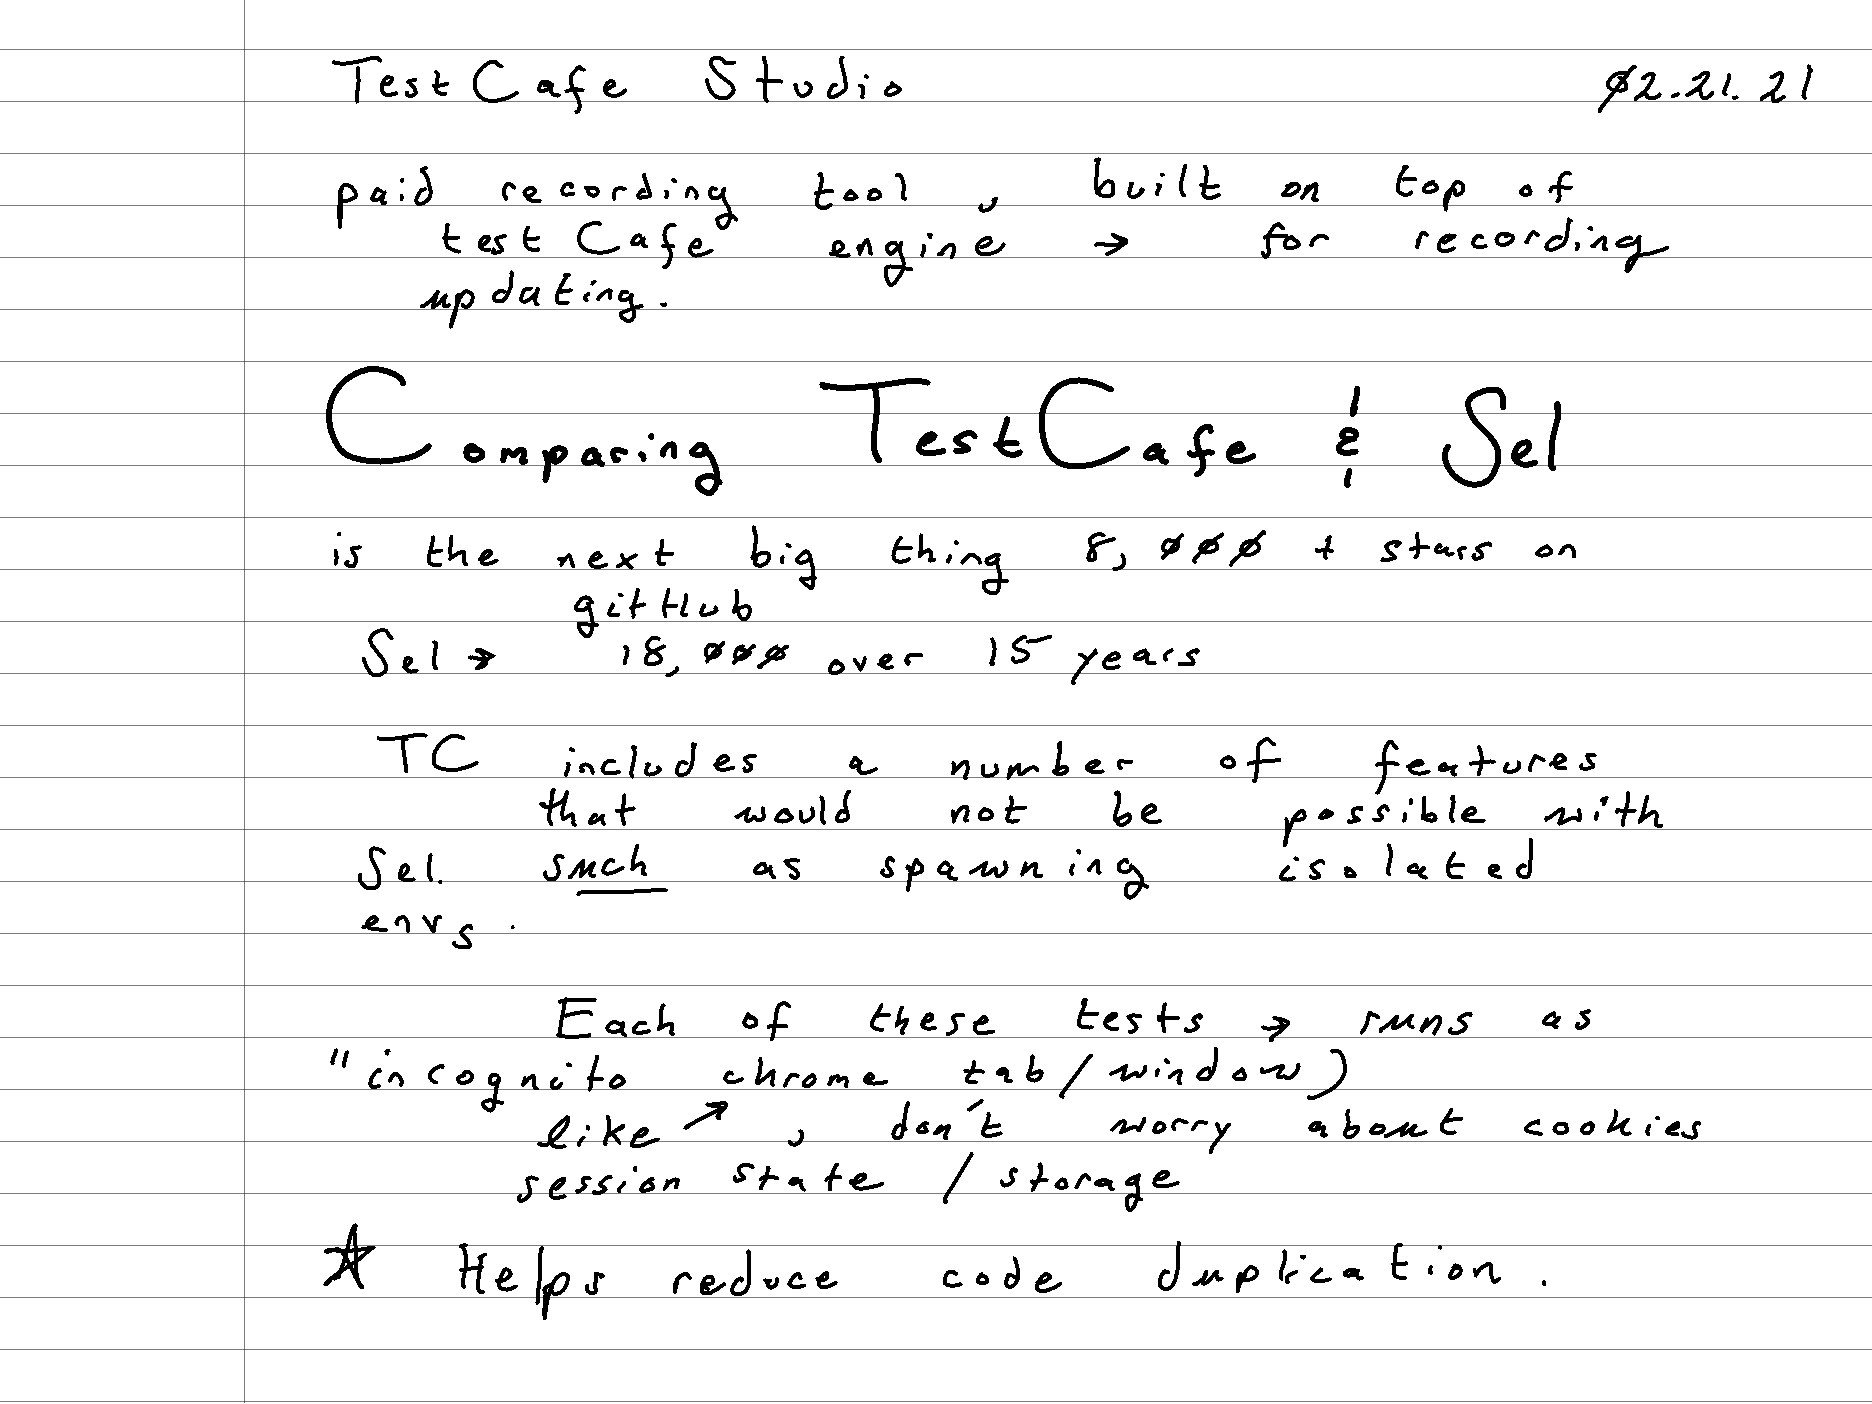 TestCafe Studio 02.21.21
paid recording tool, built on top of
testCafe engine → for recording
updating.
Comparing TestCafe & Sel
is the next big thing 8,000 + stars on
gitHub
Sel → 18,000 over 15 years
TC includes a number of features
that would not be possible with
Sel. such as spawning isolated
envs.
Each of these tests → runs as
"incognito chrome tab/window)
like ↗, don't worry about cookies
session state / storage
☆ Helps reduce code duplication.